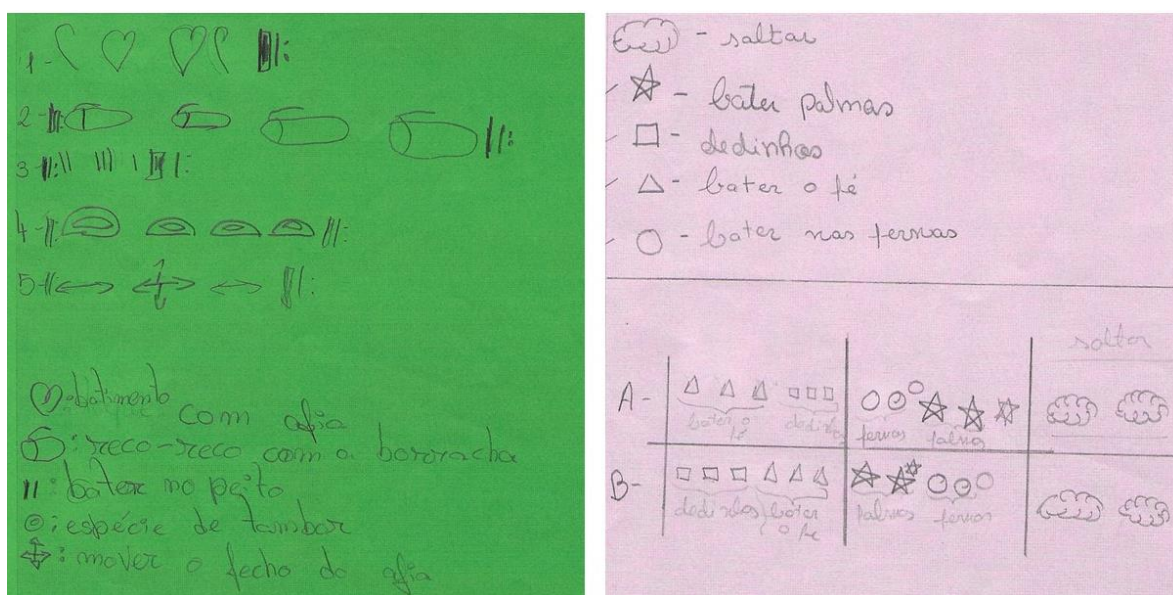 1-
2-
3-
4-
5-
batimento com afia
reco-reco com a borracha
bater no peito
espécie de tambor
mover o fecho do afia
- saltar
- bater palmas
- dedinhos
- bater o pé
- bater nas pernas
saltar
A-
bater o pé dedinhos pernas palmas
B-
dedinhos bater o pé palmas pernas